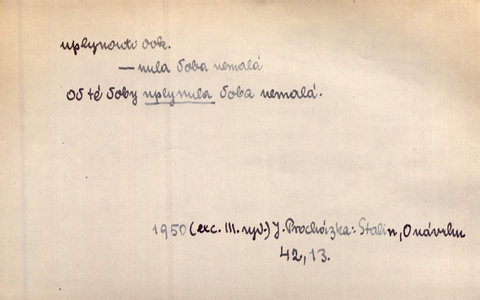 uplynouti dok.
— nula doba nemalá
Od té doby uplynula doba nemalá.
1950 (exc. III. vyd.) J. Procházka: Stalin, O návrhu
42, 13.